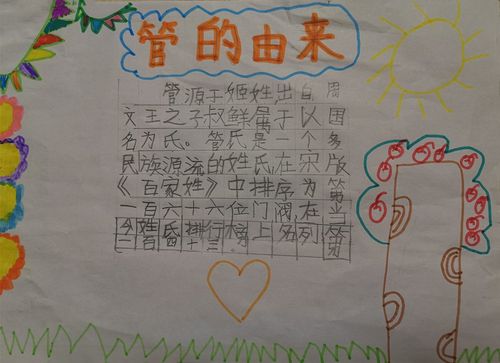 管的由来
管源于姬姓出自周
文王之子叔鲜属于以国
名为氏。管氏是一个多
民族源流的姓氏在宋版
《百家姓》中排序为第
一百六十六位门阀,在当
今姓氏排行榜上名列第
一百 十三